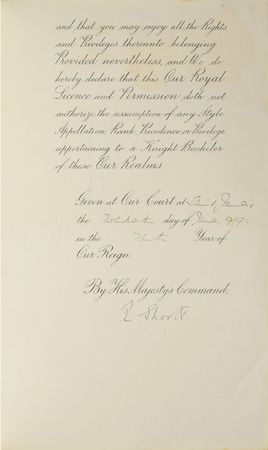 and that you may enjoy all the Rights
and Privileges thereunto belonging
Provided nevertheless, and We do
hereby declare that this Our Royal
Licence and Permission doth not
authorize the assumption of any Style
Appellation, Rank, Precedence, or Privilege
appertaining to a Knight Bachelor
of these Our Realms.
Given at Our Court at Saint James's
the day of June 1919:
in the Tenth Year of
Our Reign
By His Majesty's Command,
E Shortt